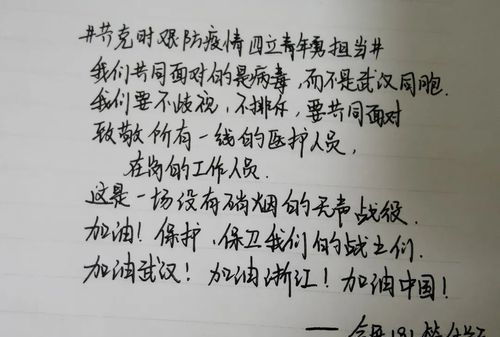 #共克时艰防疫情 四立青年勇担当#
我们共同面对的是病毒,而不是武汉同胞.
我们要不歧视,不排斥,要共同面对
致敬所有一线的医护人员,
在岗的工作人员.
这是一场没有硝烟的无声战役.
加油!保护、保卫我们的战士们.
加油武汉!加油浙江!加油中国!
——